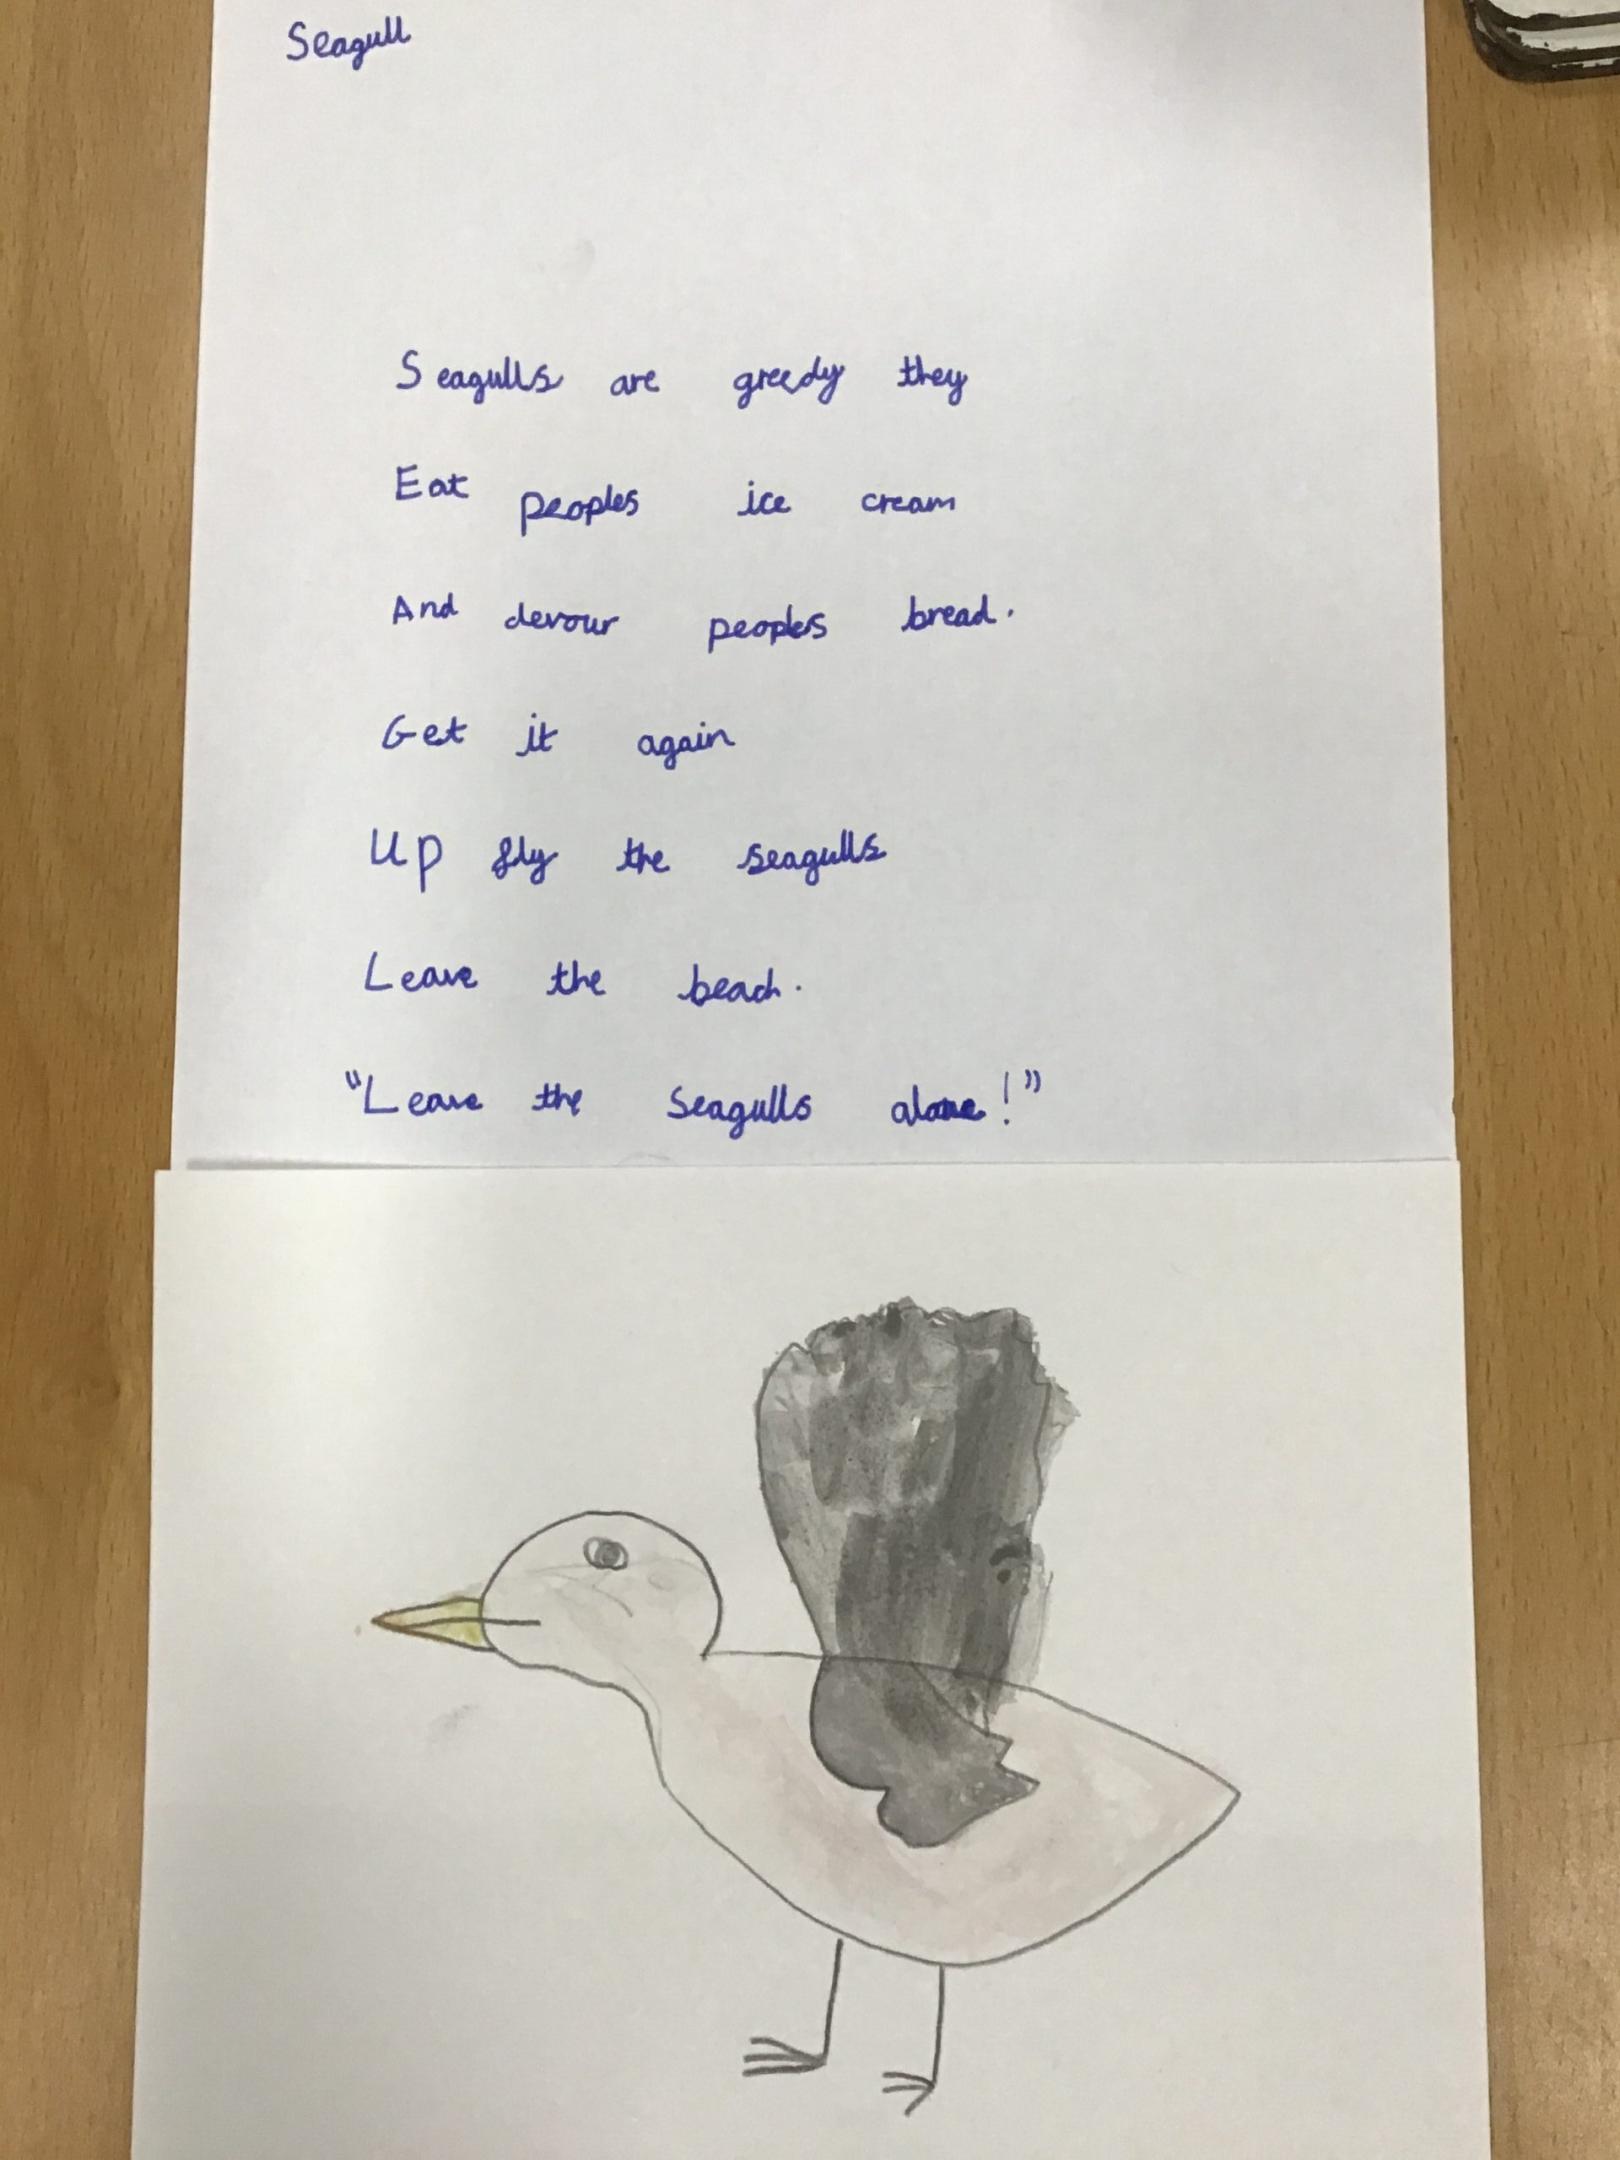 Seagull
Seagulls are greedy they
Eat peoples ice cream
And devour peoples bread.
Get it again
Up fly the seagulls
Leave the beach.
"Leave the Seagulls alone!"